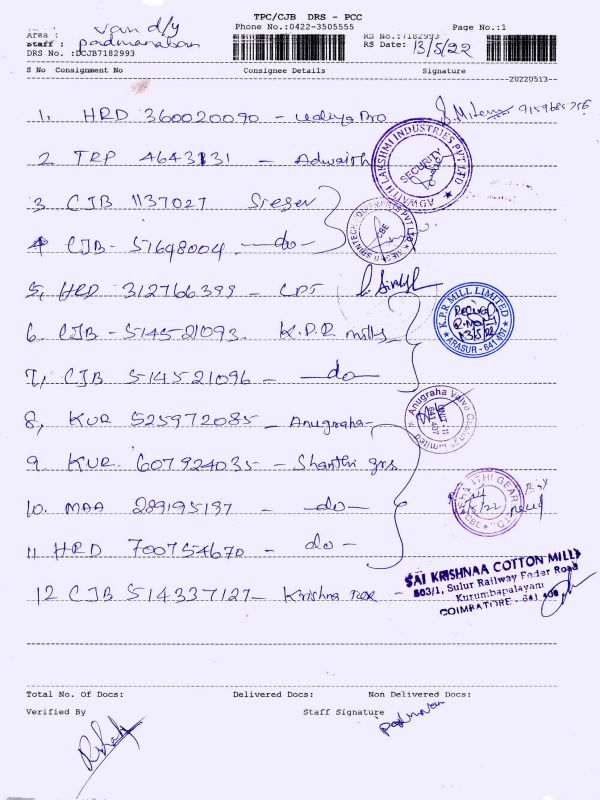 TPC/CJB DRS - PCC
Area : van d/y
Phone No.:0422-3505555
Page No.:1
Staff : Padmanaban
RS No.:7182993
DRS No. :DCJB7182993
RS Date: 13/5/22
S No Consignment No Consignee Details Signature
20220513
1, HRD 360020090 - Udaya Bro
2. TRP 4643131 - Adwaith
ADWAITH LAKSHMI INDUSTRIES PVT LTD
SECURITY
3 CJB 1137027
4 CJB - 51648004 - do -
CBE
5, HRD 312766399 - CPT
6. CJB - 514521093. K.P.R mills
K.P.R MILL LIMITED
13/5/22
ARASUR - 641 407
7, CJB 514521096 - do -
8, KUR 525972085 - Anugraha
Anugraha Valve Castings Limited
9. KUR 607924035 - Shanthi grs
10. MAA 289195197 - do -
11 HRD 700754670 - do -
12 CJB 514337127 - Krishna
SAI KRISHNAA COTTON MILL
603/1, Sulur Railway Feder Road
Kurumbapalayam
COIMBATORE - 641
Total No. Of Docs: Delivered Docs: Non Delivered Docs:
Verified By Staff Signature